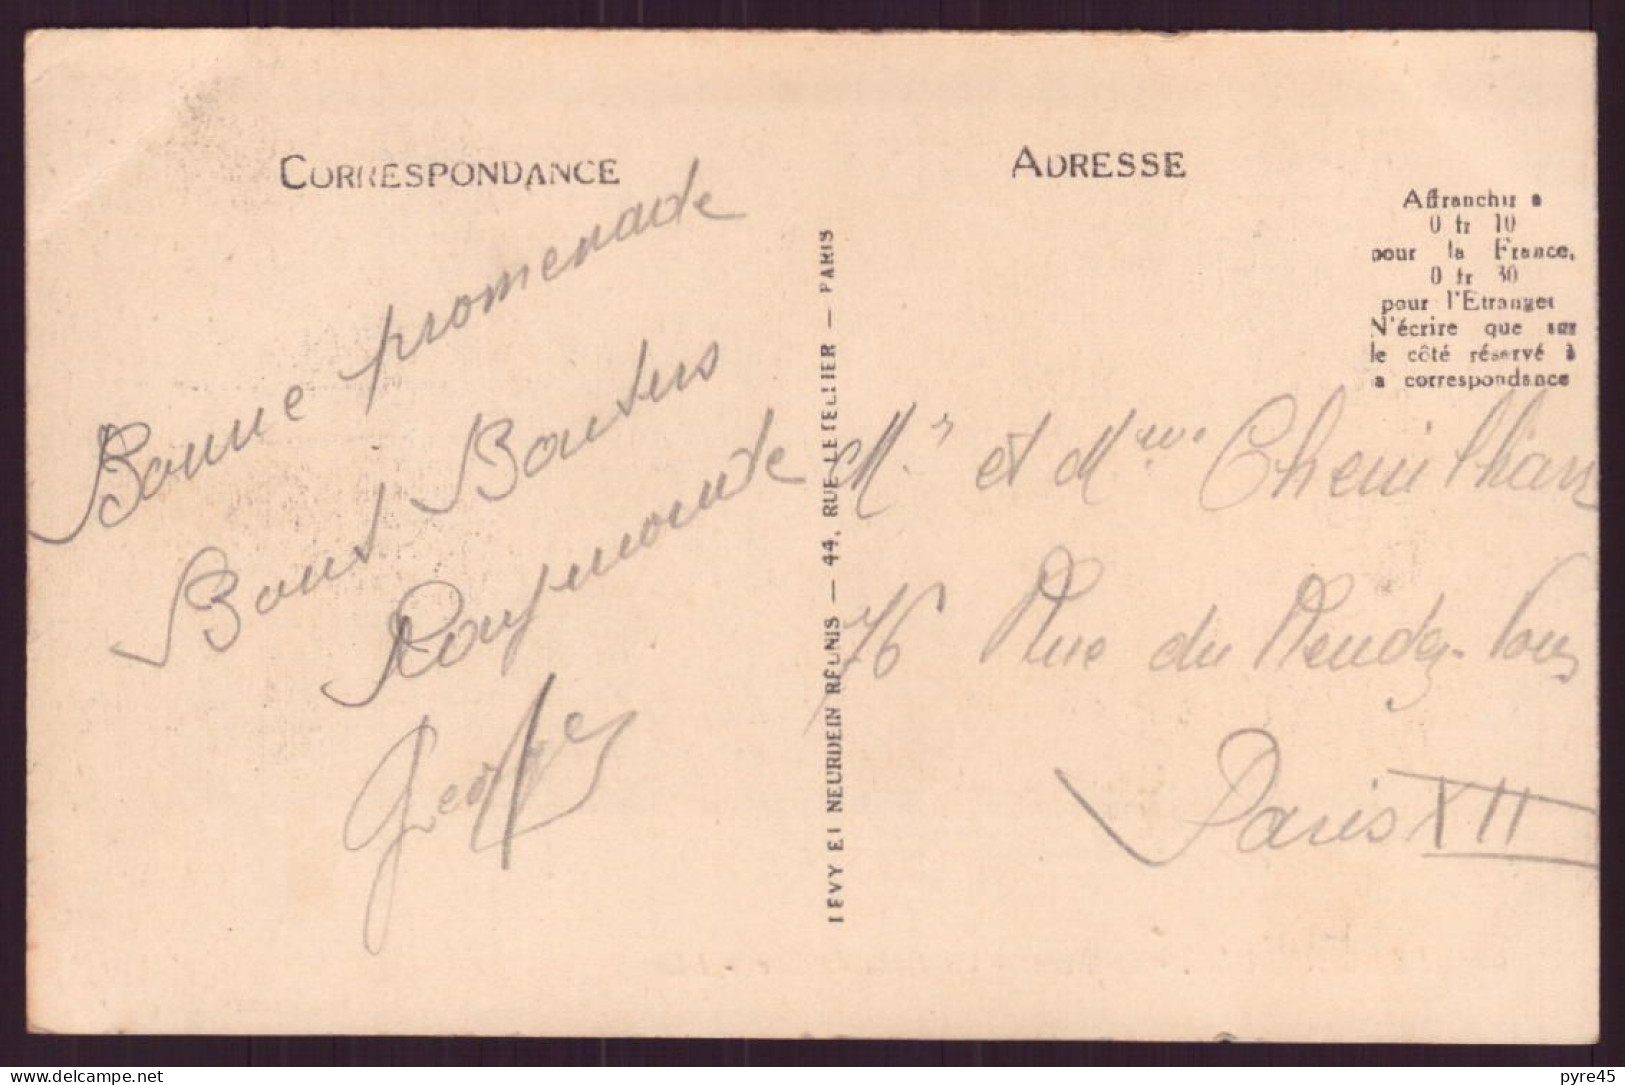 CORRESPONDANCE
Bonne promenade
Bont Bonters
Raymonde
Georges
LEVY ET NEURDEIN RÉUNIS — 44, RUE LETELLIER — PARIS
ADRESSE
Affranchir à
0 fr 10
pour la France,
0 fr 30
pour l'Etranger
N'écrire que sur
le côté réservé à
la correspondance
Mr et Mme
76 Rue du Rendez-Vous
Paris XII
www.delcampe.net
pyre45